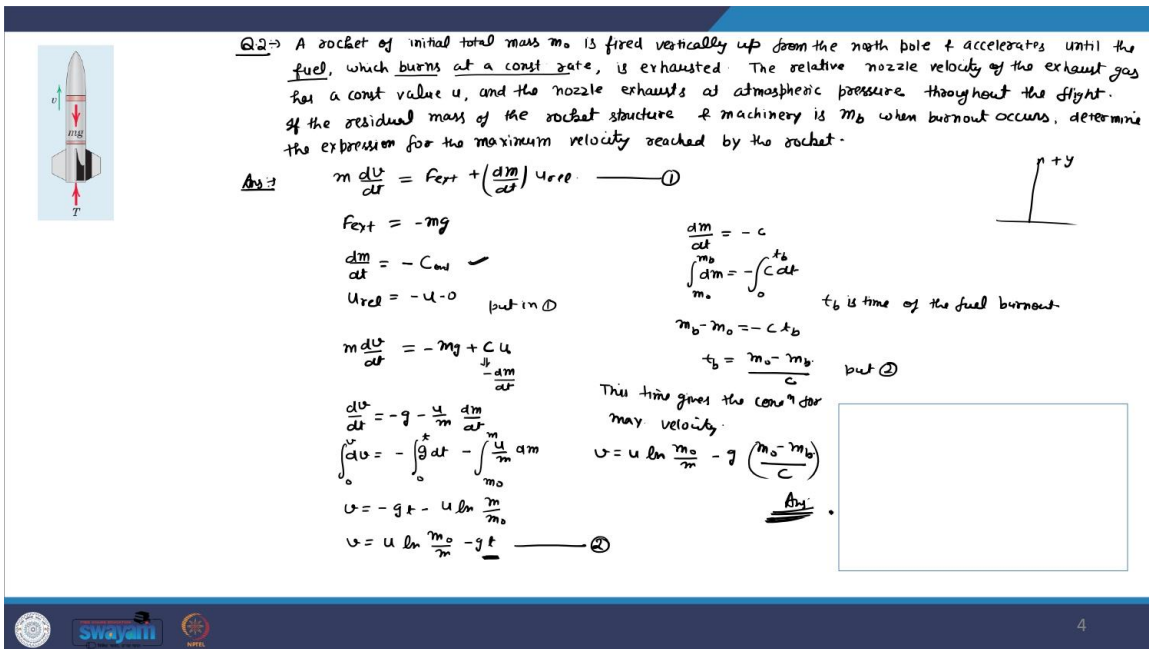 Q2→ A rocket of initial total mass m₀ is fired vertically up from the north pole & accelerates until the
fuel, which burns at a const rate, is exhausted. The relative nozzle velocity of the exhaust gas
has a const value u, and the nozzle exhausts at atmospheric pressure throughout the flight.
If the residual mass of the rocket structure & machinery is m_b when burnout occurs, determine
the expression for the maximum velocity reached by the rocket.
v
mg
T
+y
Ans→ m dv/dt = Fext + (dm/dt) urel. ——— ①
Fext = -mg
dm/dt = - Const
urel = -u-0 put in ①
m dv/dt = -mg + C u
⇓
-dm/dt
dv/dt = -g - u/m dm/dt
∫₀^v dv = - ∫₀^t g dt - ∫_{m₀}^m u/m dm
v = -gt - u ln m/m₀
v = u ln m₀/m - gt ——— ②
dm/dt = - c
∫_{m₀}^{m_b} dm = - ∫₀^{t_b} C dt
t_b is time of the fuel burnout
m_b - m₀ = - C t_b
t_b = (m₀ - m_b)/C put ②
This time gives the conⁿ for
max velocity.
v = u ln m₀/m - g ((m₀ - m_b)/C)
Ans.
swayam
NPTEL
4